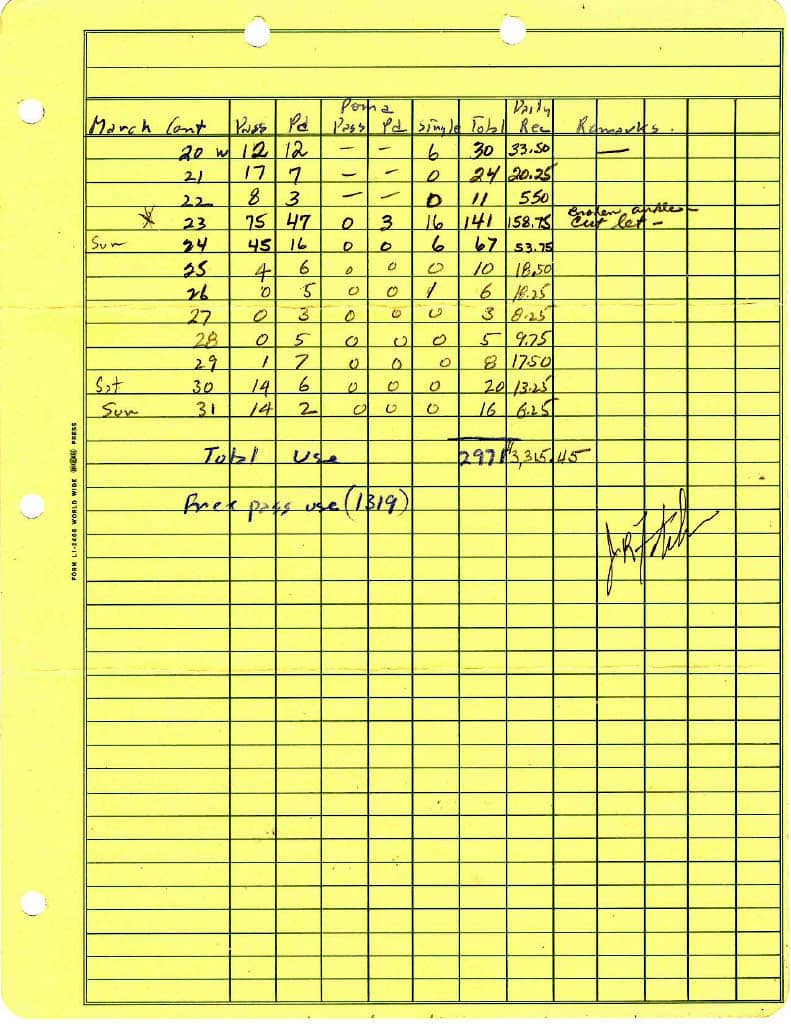 Poma Daily
March Cont Pass Pd Pass Pd Single Total Rec Remarks.
20 w 12 12 — — 6 30 33.50 —
21 17 7 — — 0 24 20.25
22 8 3 — — 0 11 5.50
broken ankle -
23 75 47 0 3 16 141 158.75 Cut leg -
Sun 24 45 16 0 0 6 67 53.75
25 4 6 0 0 0 10 18.50
26 0 5 0 0 1 6 18.25
27 0 3 0 0 0 3 8.25
28 0 5 0 0 0 5 9.75
29 1 7 0 0 0 8 17.50
Sat 30 14 6 0 0 0 20 13.25
Sun 31 14 2 0 0 0 16 6.25
Total Use 2971 $3,315.45
Free pass use (1319)
FORM L1-2466 WORLD WIDE PRESS